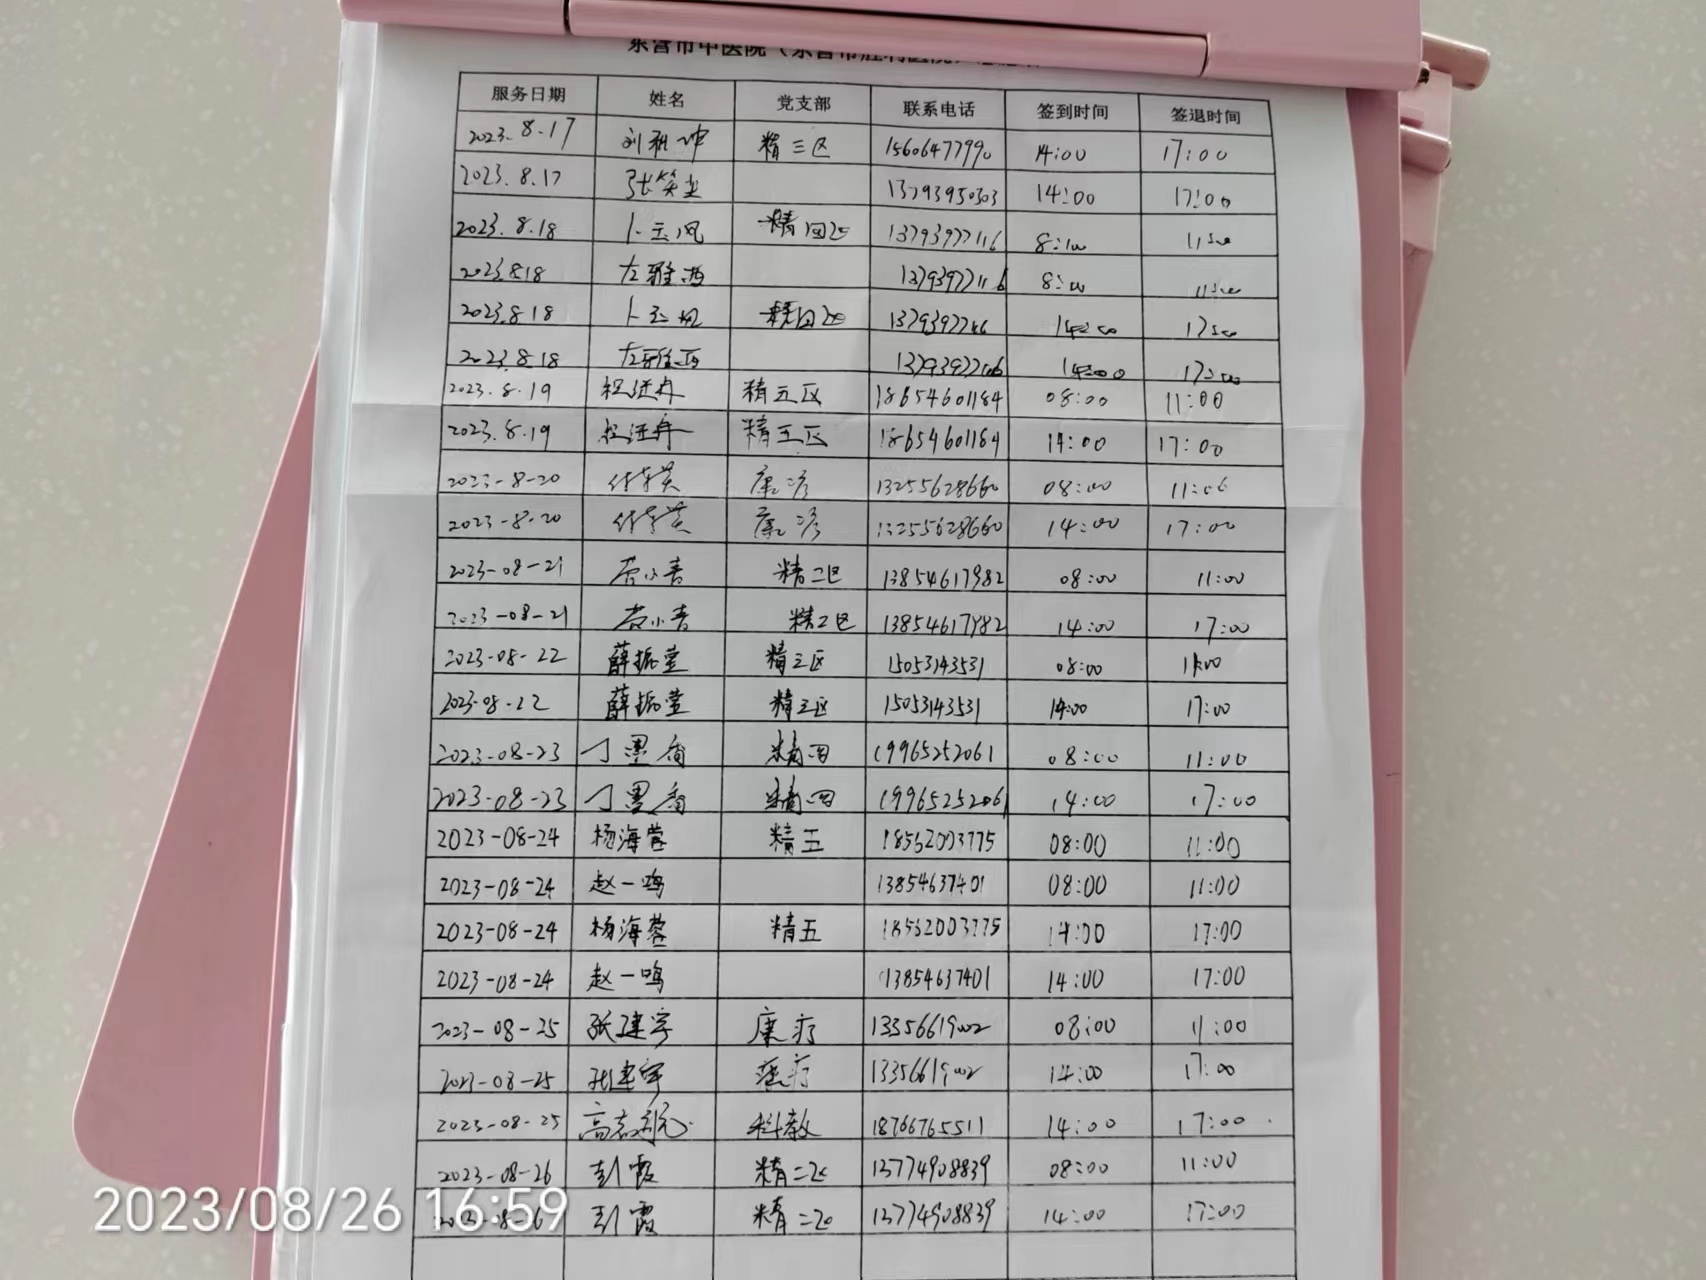 东营市中医院（东营市胜利医院）
服务日期 姓名 党支部 联系电话 签到时间 签退时间
2023.8.17 刘 坤 精三区 15606477990 14:00 17:00
2023.8.17 张笑 13793950303 14:00 17:00
2023.8.18 卜玉凤 精四区 13793977116 8:00 11:00
2023.8.18 左雅西 13793977116 8:00 11:00
2023.8.18 卜玉凤 精四区 14:00 17:00
2023.8.18 左雅西 14:00 17:00
2023.8.19 精五区 18654601184 08:00 11:00
2023.8.19 精五区 18654601184 14:00 17:00
2023-8-20 康疗 13255628660 08:00 11:00
2023-8-20 康疗 13255628660 14:00 17:00
2023-08-21 苟小青 精二区 13854617982 08:00 11:00
2023-08-21 苟小青 精二区 13854617982 14:00 17:00
2023-08-22 薛振莹 精三区 15053143531 08:00 11:00
2023-08-22 薛振莹 精三区 15053143531 14:00 17:00
2023-08-23 丁墨香 精四 19965252061 08:00 11:00
2023-08-23 丁墨香 精四 19965252061 14:00 17:00
2023-08-24 杨海蓉 精五 18562003775 08:00 11:00
2023-08-24 赵一鸣 13854637401 08:00 11:00
2023-08-24 杨海蓉 精五 18562003775 14:00 17:00
2023-08-24 赵一鸣 13854637401 14:00 17:00
2023-08-25 张建宇 康疗 13356619002 08:00 11:00
2023-08-25 张建宇 康疗 13356619002 14:00 17:00
2023-08-25 高志 科教 18766765511 14:00 17:00
2023-08-26 彭霞 精二区 13774908839 08:00 11:00
彭霞 精二区 13774908839 14:00 17:00
2023/08/26 16:59